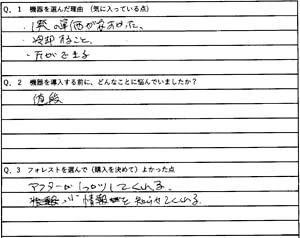 Q．1　機器を選んだ理由（気に入っている点）
・冷却すること、
Q．2　機器を導入する前に、どんなことに悩んでいましたか？
値段
Q．3　フォレストを選んで（購入を決めて）よかった点
アフターがしっかりしてくれる。
情報を知らせてくれる